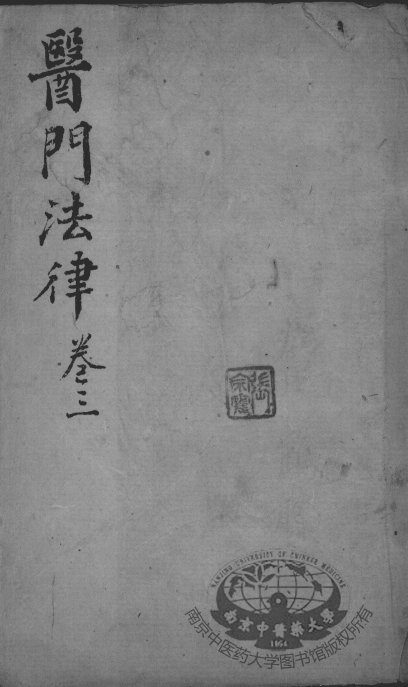 醫門法律 卷三
NANJING UNIVERSITY OF CHINESE MEDICINE
南京中醫藥大學
1954
南京中医药大学图书馆版权所有